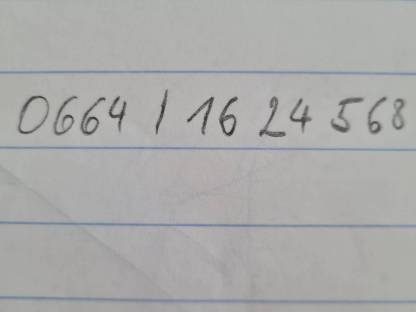 0664 / 16 24 568